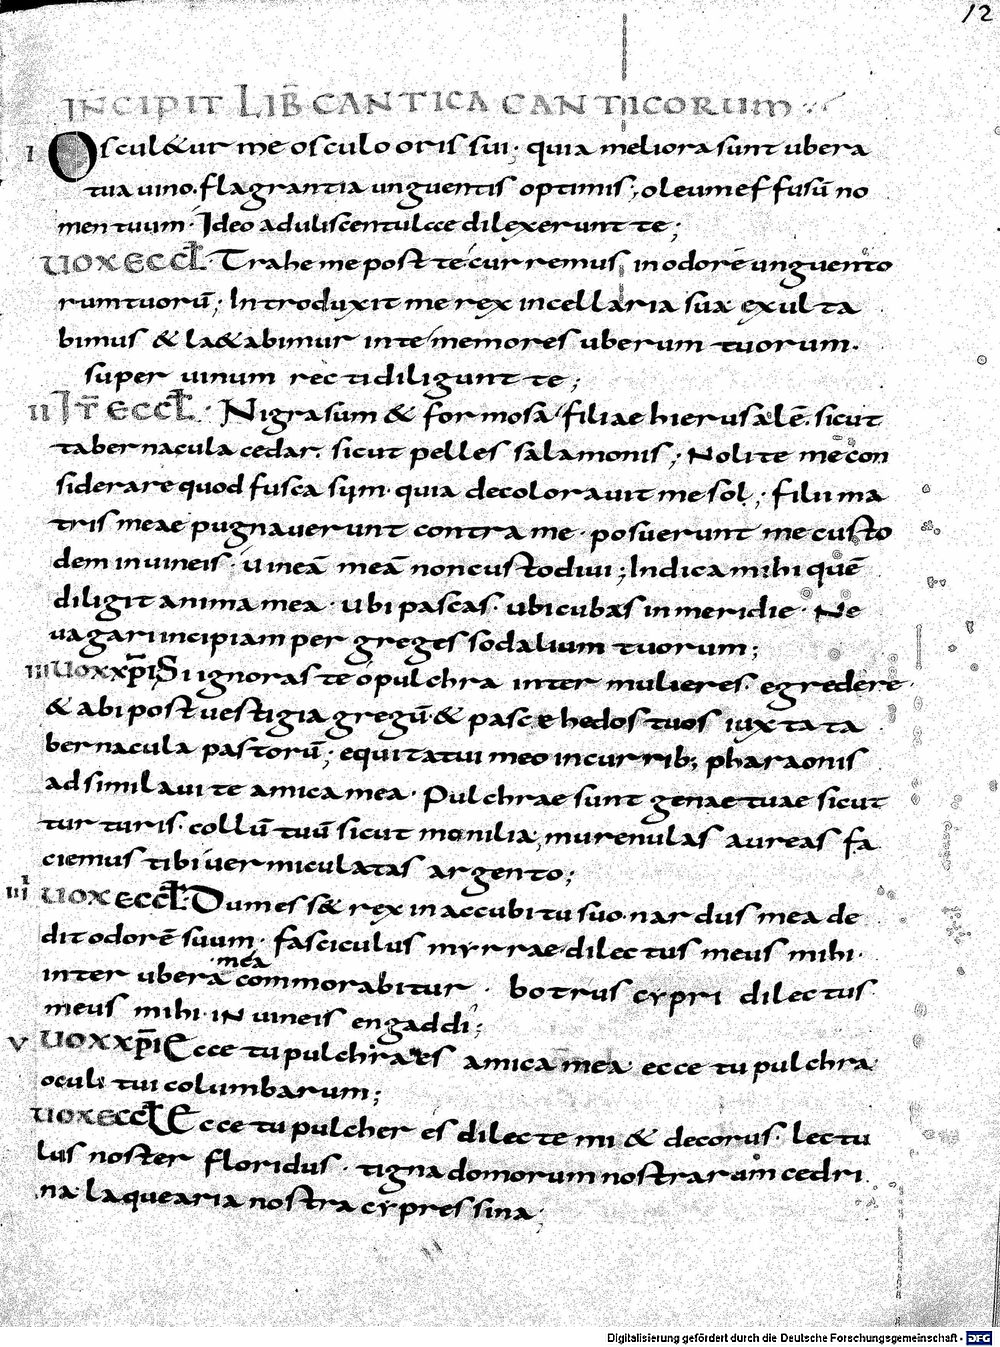 12
INCIPIT LIB̄ CANTICA CANTICORUM
I Oscul&ur me osculo oris sui· quia meliora sunt ubera
tua uino. flagrantia unguentis optimis; oleum effusū no
men tuum· Ideo aduliscentulae dilexerunt te;
UOX ECCL· Trahe me post te curremus in odorē unguento
rum tuorū; Introduxit me rex in cellaria sua exulta
bimus & la&abimur in te memores uberum tuorum·
super uinum recti diligunt te;
II IT̄ ECCL· Nigra sum & formosa filiae hierusalē. sicut
tabernacula cedar. sicut pelles salamonis; Nolite me con
siderare quod fusca sim· quia decolorauit me sol; filii ma
tris meae pugnauerunt contra me· posuerunt me custo
dem in uineis· uineā meā non custodiui; Indica mihi quē
diligit anima mea· ubi pascas· ubi cubas in meridie· Ne
uagari incipiam per greges sodalium tuorum;
III UOX XP̄I Si ignoras te o pulchra inter mulieres· egredere·
& abi post uestigia gregū· & pasce hedos tuos iuxta ta
bernacula pastorū; equitatui meo in currib; pharaonis
adsimilaui te amica mea· Pulchrae sunt genae tuae sicut
turturis· collū tuū sicut monilia; murenulas aureas fa
ciemus tibi uermiculatas argento;
IIII UOX ECCL· Dum ess& rex in accubitu suo· nardus mea de
dit odorē suum· fasciculus myrrae dilectus meus mihi·
mea
inter ubera commorabitur· botrus cypri dilectus
meus mihi· in uineis engaddi;
V UOX XP̄I Ecce tu pulchra es amica mea ecce tu pulchra
oculi tui columbarum;
UOX ECCL Ecce tu pulcher es dilecte mi & decorus· lectu
lus noster floridus· tigna domorum nostrarum cedri
na· laquearia nostra cypressina;
Digitalisierung gefördert durch die Deutsche Forschungsgemeinschaft - DFG